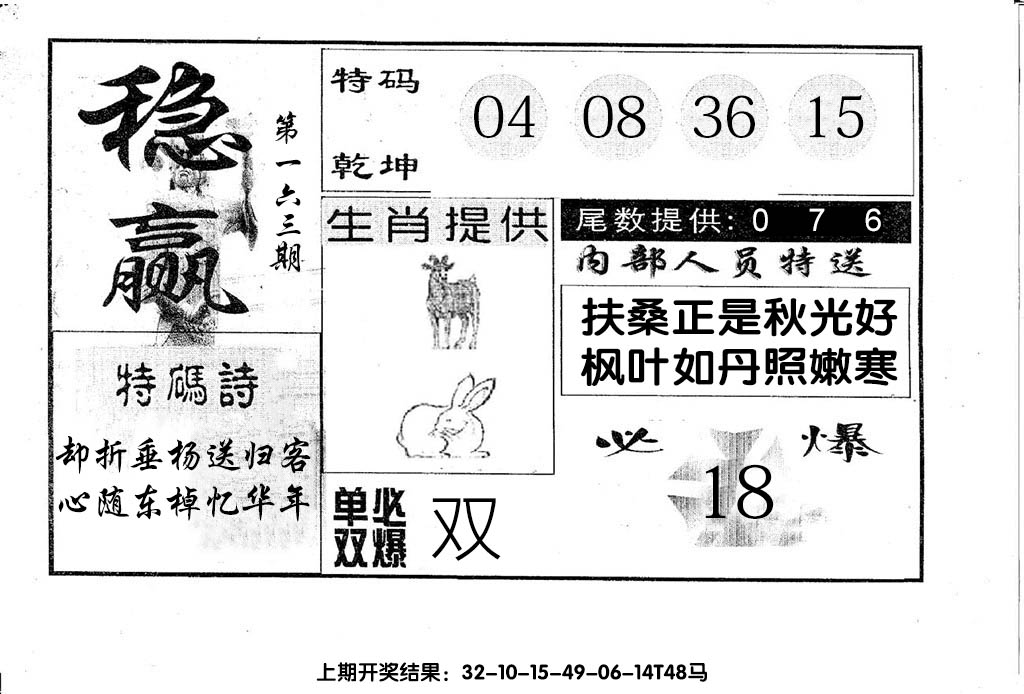 稳赢
第一六三期
特码
乾坤
04 08 36 15
生肖提供
尾数提供: 0 7 6
内部人员特送
扶桑正是秋光好
枫叶如丹照嫩寒
特碼詩
却折垂杨送归客
心随东棹忆华年
单双
必爆
双
必爆
18
上期开奖结果：32-10-15-49-06-14T48马